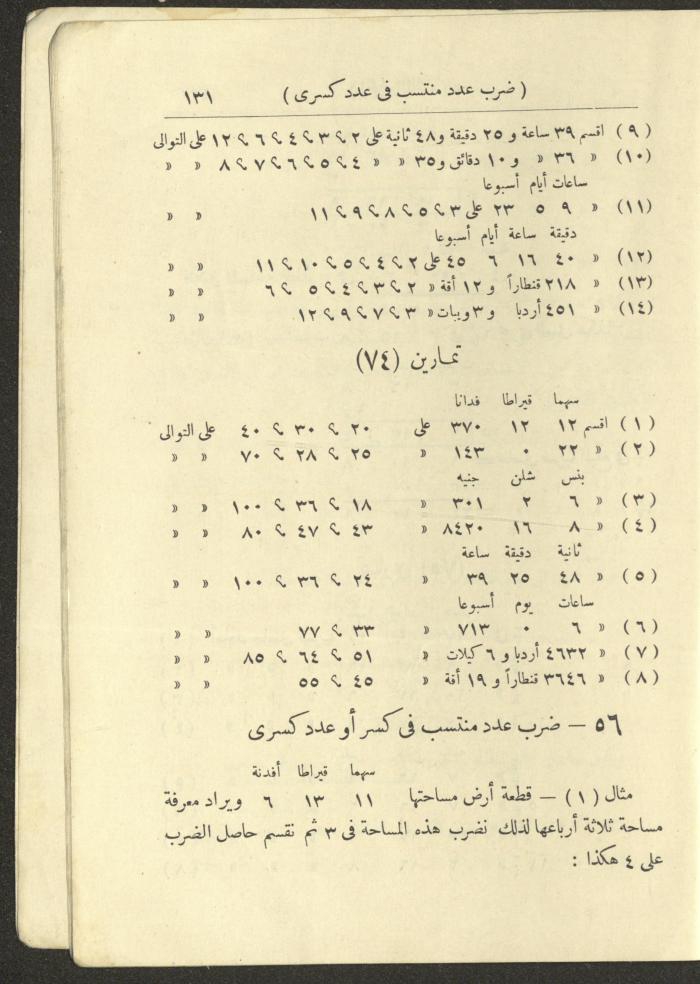 ( ضرب عدد منتسب فى عدد كسرى ) ١٣١
(٩) اقسم ٣٩ ساعة و ٢٥ دقيقة و٤٨ ثانية على ٢ ؟ ٣ ؟ ٤ ؟ ٦ ؟ ١٢ على التوالى
(١٠) « ٣٦ « و ١٠ دقائق و٣٥ « « ٤ ؟ ٥ ؟ ٦ ؟ ٧ ؟ ٨ « «
ساعات أيام أسبوعا
(١١) « ٩ ٥ ٢٣ على ٣ ؟ ٥ ؟ ٨ ؟ ٩ ؟ ١١ « «
دقيقة ساعة أيام أسبوعا
(١٢) « ٤٠ ١٦ ٦ ٤٥ على ٢ ؟ ٤ ؟ ٥ ؟ ١٠ ؟ ١١ « «
(١٣) « ٢١٨ قنطاراً و ١٢ أقة « ٢ ؟ ٣ ؟ ٤ ؟ ٥ ؟ ٦ « «
(١٤) « ٤٥١ أردبا و ٣ ويبات « ٣ ؟ ٧ ؟ ٩ ؟ ١٢ « «
تمارين (٧٤)
سهما قيراطا فدانا
(١) اقسم ١٢ ١٢ ٣٧٠ على ٢٠ ؟ ٣٠ ؟ ٤٠ على التوالى
(٢) « ٢٢ ٠ ١٤٣ « ٢٥ ؟ ٢٨ ؟ ٧٠ « «
بنس شلن جنيه
(٣) « ٦ ٢ ٣٠١ « ١٨ ؟ ٣٦ ؟ ١٠٠ « «
(٤) « ٨ ١٦ ٨٤٢٠ « ٤٣ ؟ ٤٧ ؟ ٨٠ « «
ثانية دقيقة ساعة
(٥) « ٤٨ ٢٥ ٣٩ « ٢٤ ؟ ٣٦ ؟ ١٠٠ « «
ساعات يوم أسبوعا
(٦) « ٦ ٠ ٧١٣ « ٣٣ ؟ ٧٧ « «
(٧) « ٤٦٣٢ أردبا و ٦ كيلات « ٥١ ؟ ٦٤ ؟ ٨٥ « «
(٨) « ٣٦٤٦ قنطاراً و ١٩ أقة « ٤٥ ؟ ٥٥ « «
٥٦ — ضرب عدد منتسب فى كسر أو عدد كسرى
سهما قيراطا أفدنة
مثال (١) — قطعة أرض مساحتها ١١ ١٣ ٦ ويراد معرفة
مساحة ثلاثة أرباعها لذلك نضرب هذه المساحة فى ٣ ثم نقسم حاصل الضرب
على ٤ هكذا :